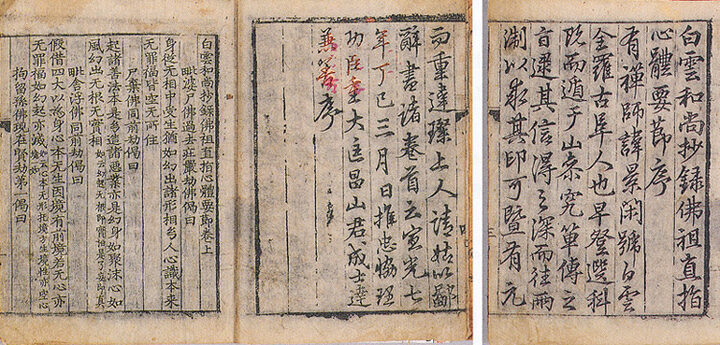 白雲和尚抄錄佛祖直指
心體要節序
有禪師諱景閑號白雲
全羅古阜人也早登選科
既而遁于山崇究單傳之
旨逮其信得之深而往兩
淛以求其印可暨有元
而重違璨上人請姑以鄙
辭書諸卷首云宣光七
年丁巳三月日推忠協理
功臣重大匡昌山君成士達
序
白雲和尚抄錄佛祖直指心體要節卷上
毗婆尸佛過去莊嚴劫偈曰
身從无相中受生猶如幻出諸形相幻人心識本來
无罪福皆空无所住
尸棄佛同前劫偈曰
起諸善法本是幻造諸惡業亦是幻身如聚沫心如
風幻出无根无實相
毗舍浮佛同前劫偈曰
假借四大以為身心本无生因境有前境若无心亦
无罪福如幻起亦滅
拘留孫佛現在賢劫第一偈曰